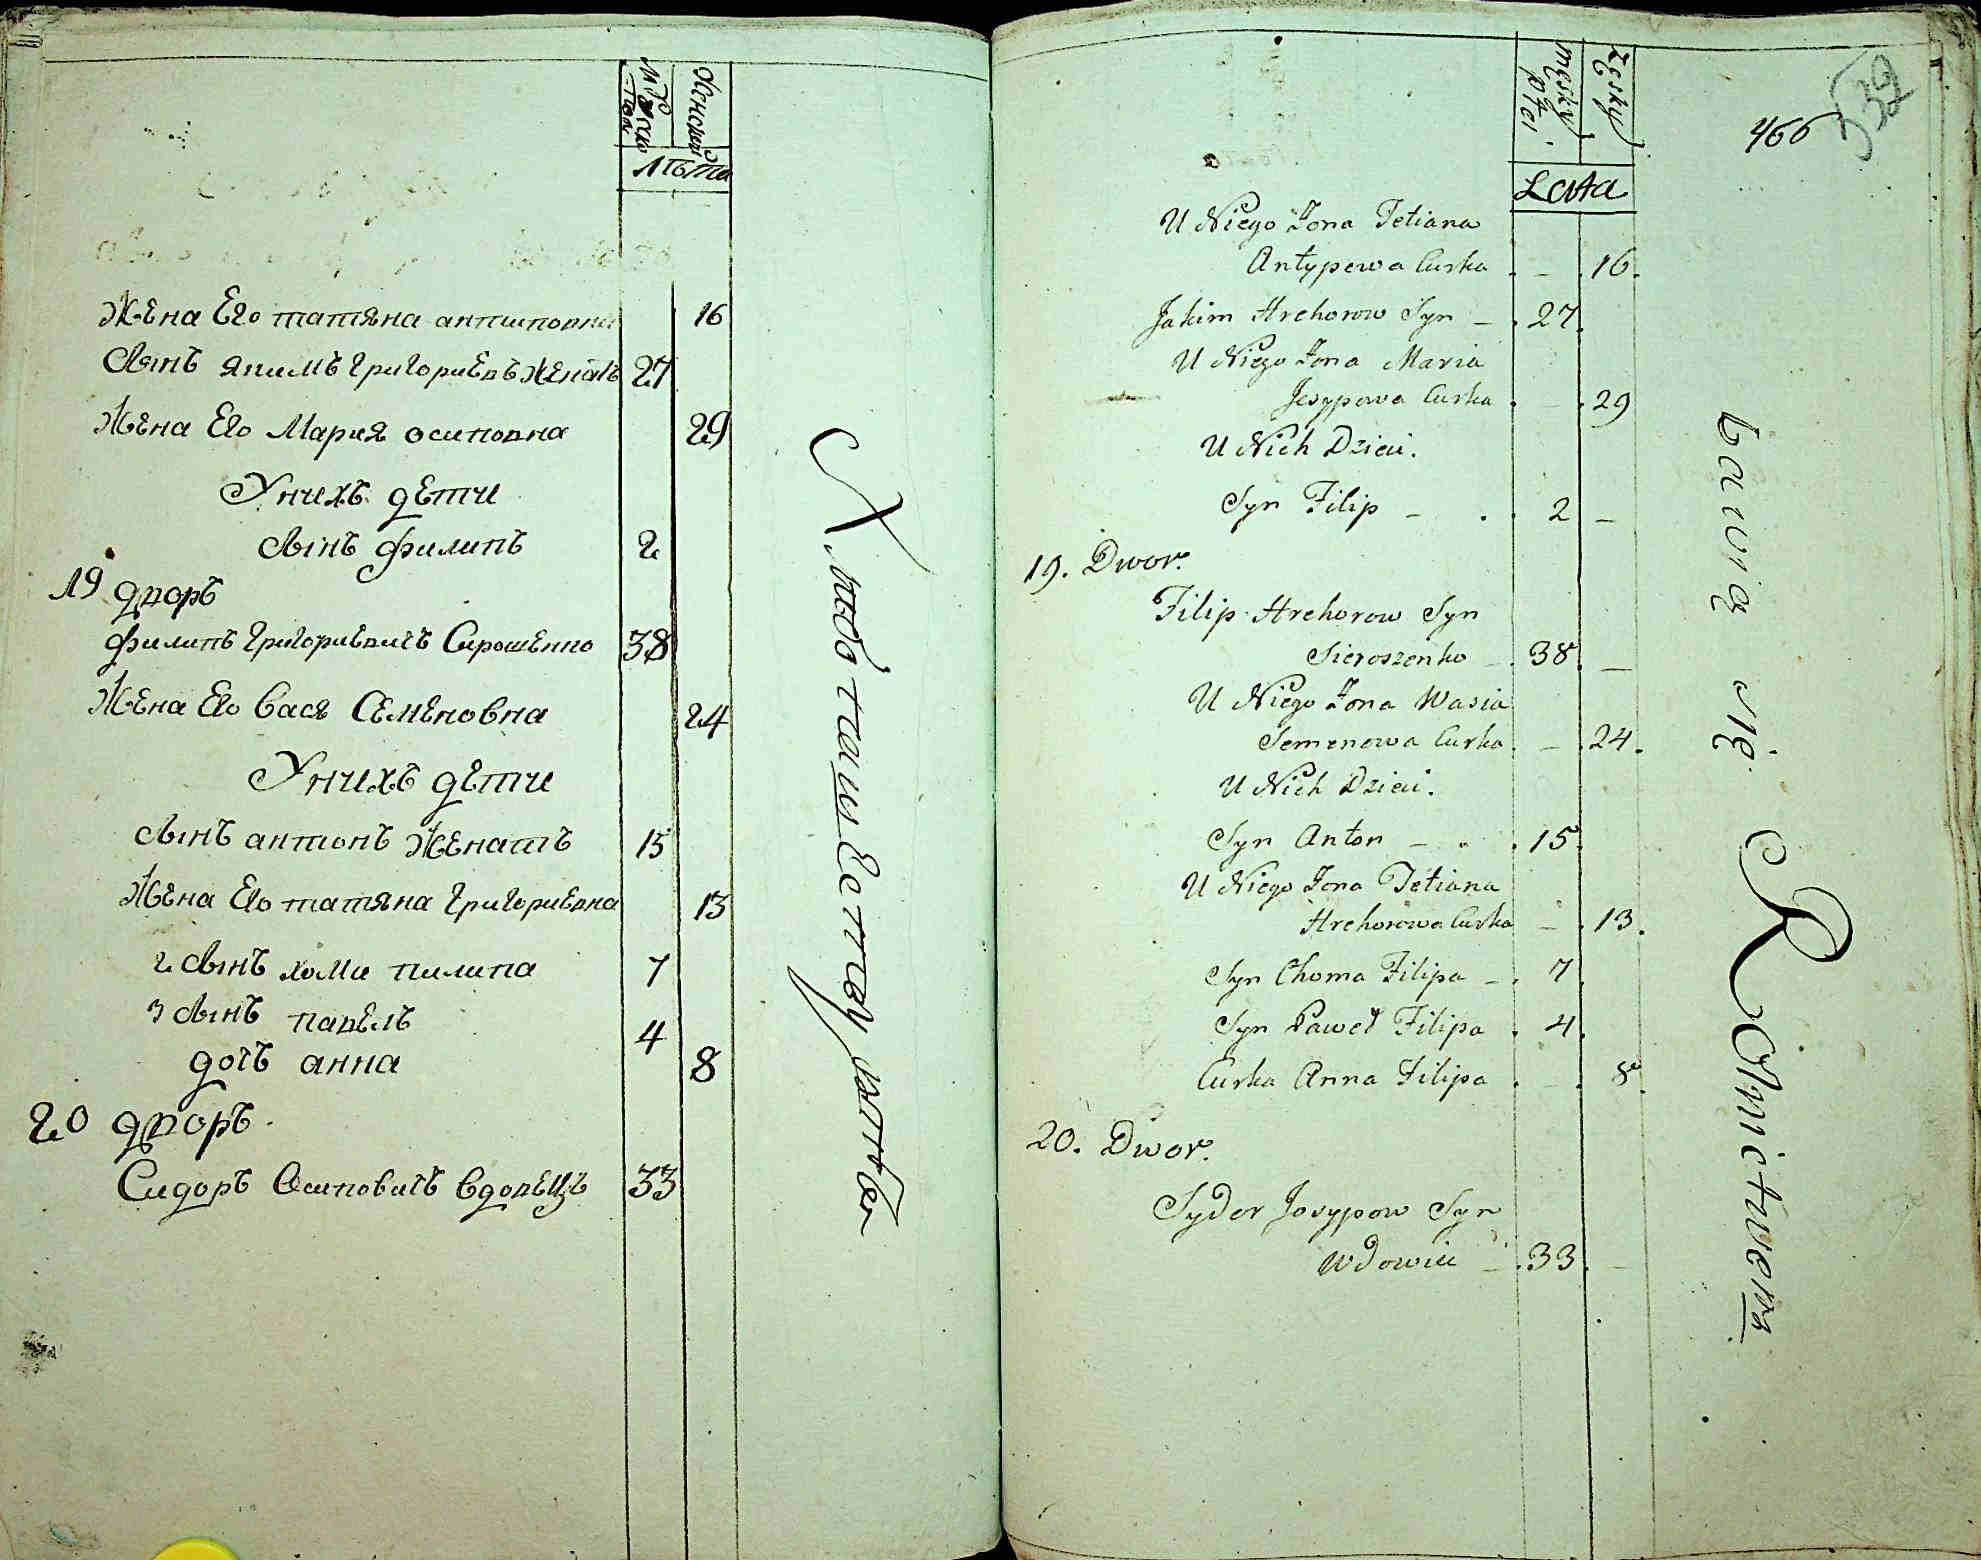 Мужеска пола
Женский
Лѣта
Жена Его татяна антиповна 16
Сынъ якимъ григориевъ женатъ 27
Жена Его Мария осиповна 29
Унихъ дети
Сынъ филипъ 2
19 дворъ
филипъ григориевичъ Сирошенко 38
Жена Его Вася Семеновна 24
Унихъ дети
Сынъ антонъ женатъ 15
Жена Его татяна григориевна 13
2 Сынъ хома пилипа 7
3 Сынъ павелъ 4
дочъ анна 8
20 дворъ.
Сидоръ Осиповичъ вдовецъ 33
męsky płei.
Zęsky
Lata
466
532
U Niego Żona Tetiana
Antypowa Curka - 16.
Jakim Hrehorow Syn - 27.
U Niego Żona Maria
Jesypowa Curka 29
U Nich Dzieci.
Syn Filip - 2 -
19. Dwor.
Filip Hrehorow Syn
Sieroszenko - 38. -
U Niego Żona Wasia
Semenowa Curka. - 24.
U Nich Dzieci.
Syn Anton - 15.
U Niego Żona Tetiana
Hrehorowa Curka - 13.
Syn Choma Filipa - 7.
Syn Paweł Filipa 4.
Curka Anna Filipa - 8
20. Dwor.
Sydor Josypow Syn
Wdowiec - 33. -
bawią się Rolnictwem